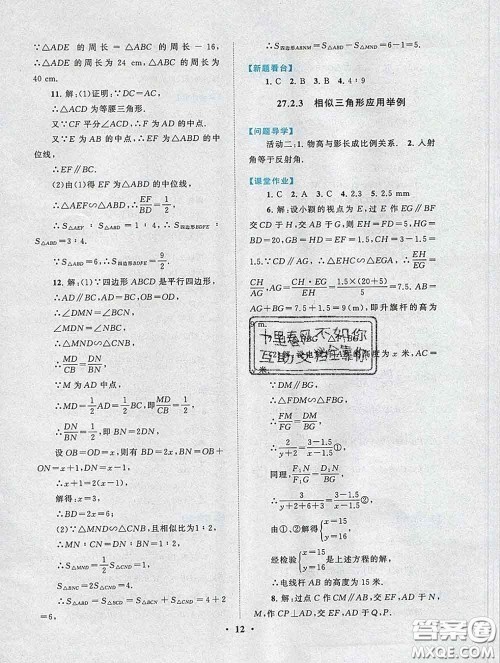 ∵△ADE 的周长 = △ABC 的周长 − 16,
∴△ADE 的周长为 24 cm,△ABC 的周长为
40 cm.
11. 解:(1)证明:∵DC=AC,
∴△ACD 为等腰三角形.
又∵CF 平分∠ACD,∴F 为 AD 的中点.
又∵E 为 AB 的中点,∴EF 为△ABD 的中位线,
∴EF∥BC.
(2)由(1)得 EF 为△ABD 的中位线,
∴△AEF∽△ABD,∴EF/BD=1/2,
∴S△AEF∶S△ABD=1∶4,∴S四边形BDFE∶
S△ABD=3∶4.
∵S△ABD=6,∴S四边形BDFE=9/2.
12. 解:(1)∵四边形 ABCD 是平行四边形,
∴AD∥BC,AD=BC,OB=OD,
∴∠DMN=∠BCN,
∠MDN=∠NBC,
∴△MND∽△CNB,
∴MD/CB=DN/BN.
∵M 为 AD 中点,∴MD=1/2AD=1/2BC,即MD/CB=1/2,
∴DN/BN=1/2,即 BN=2DN.
设 OB=OD=x,则有 BD=2x,BN=OB+
ON=x+1,DN=x−1,
∴x+1=2(x−1),
解得:x=3,
∴BD=2x=6;
(2)∵△MND∽△CNB,且相似比为1∶2,
∴MN∶CN=DN∶BN=1∶2,
∴S△MND=1/2S△CND=1,
S△BNC=2S△CND=4.
∴S△ABD=S△BCD=S△BCN+S△CND=4+2
=6,
∴S四边形ABNM=S△ABD−S△MND=6−1=5.
【新题看台】
1. C 2. B 3. B 4. 4∶9
27.2.3 相似三角形应用举例
【问题导学】
活动二:1. 物高与影长成比例关系. 2. 入射
角等于反射角.
【课堂作业】
1. C 2. A 3. C 4. 3 5. 2.5 mm
6. 解:设小颖的视点为 E,过 E 作 EG∥BF
交 CD 于 H,交 AB 于 G,则 EH=DF=5,HG=
BD=20,HD=EF=BG=1.5,CH=CD−HD=3−
1.5=1.5.∵CD∥AG,∴∠CHE=∠AGE,∴CH/AG=EH/EG,
AG=CH·EG/EH=1.5×(20+5)/5
=7.5,即升旗杆的高为
m.
十里春风不如你
互助文档全靠你
米.
∵DM∥BG,
∴△FDM∽△FBG,
∴FM/FG=DM/BG,
∴2/(y+2)=(3−1.5)/(x−1.5)①,
同理,F₁N/F₁G=D₁N/BG,
∴3/(y+2+6+3)=(3−1.5)/(x−1.5)②,
由①、②解得{x=15 y=16
经检验{x=15 y=16是上述方程的解,
∴电线杆 AB 的高度为 15 米.
8. 解:过点 C 作 CQ∥AE,交 AD 于 Q,
作 CP⊥AD,交 EF、AD 于 Q、P.
12
答案圈
MXQE.COM